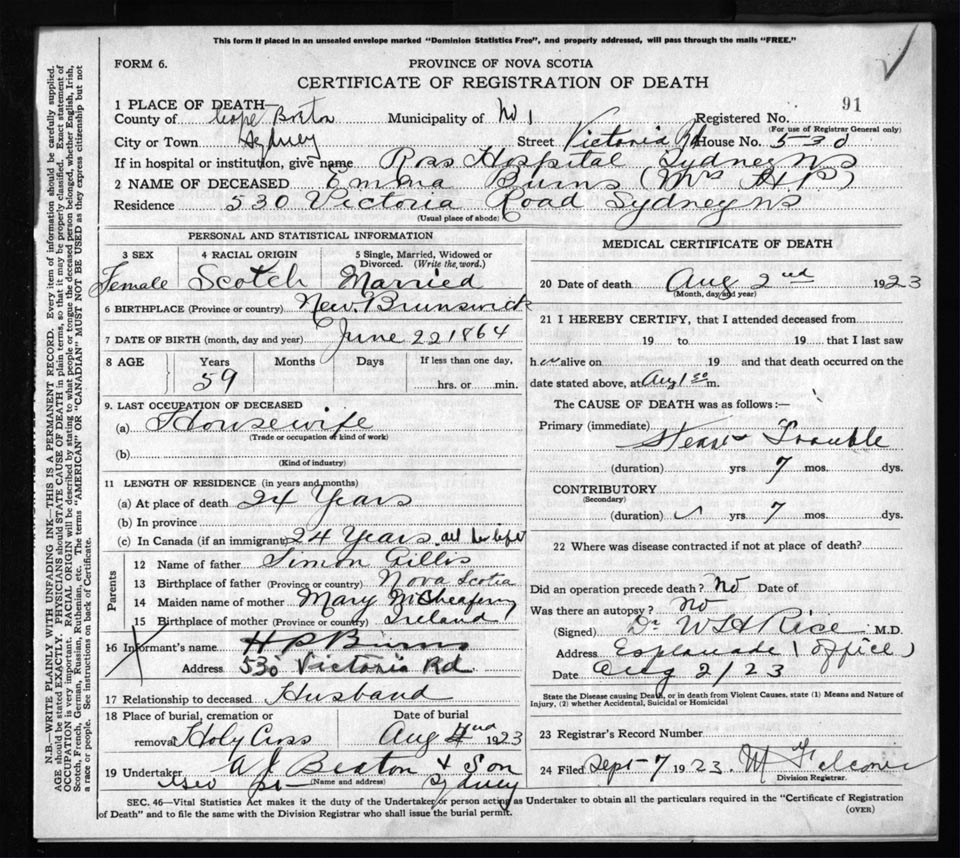 This form if placed in an unsealed envelope marked "Dominion Statistics Free", and properly addressed, will pass through the mails "FREE."
FORM 6.
PROVINCE OF NOVA SCOTIA
CERTIFICATE OF REGISTRATION OF DEATH
91
1 PLACE OF DEATH—
County of Cape Breton Municipality of No 1 Registered No.
(For use of Registrar General only)
City or Town Sydney Street Victoria Rd House No. 530
If in hospital or institution, give name Ross Hospital Sydney NS
2 NAME OF DECEASED Emma Burns (Mrs H P)
Residence 530 Victoria Road Sydney NS
(Usual place of abode)
PERSONAL AND STATISTICAL INFORMATION
3 SEX Female
4 RACIAL ORIGIN Scotch
5 Single, Married, Widowed or Divorced. (Write the word.) Married
6 BIRTHPLACE (Province or country) New Brunswick
7 DATE OF BIRTH (month, day and year) June 22 1864
8 AGE Years 59 Months Days If less than one day, hrs. or min.
9. LAST OCCUPATION OF DECEASED
(a) Housewife
(Trade or occupation or kind of work)
(b)
(Kind of industry)
11 LENGTH OF RESIDENCE (in years and months)
(a) At place of death 24 Years
(b) In province
(c) In Canada (if an immigrant) 24 Years all her life
Parents
12 Name of father Simon Gillis
13 Birthplace of father (Province or country) Nova Scotia
14 Maiden name of mother Mary
15 Birthplace of mother (Province or country) Ireland
16 Informant's name H P Burns
Address 530 Victoria Rd
17 Relationship to deceased Husband
18 Place of burial, cremation or removal Holy Cross Date of burial Aug 4 1923
19 Undertaker A J Beaton & Son
(Name and address) Sydney
MEDICAL CERTIFICATE OF DEATH
20 Date of death Aug 2nd 1923
(Month, day and year)
21 I HEREBY CERTIFY, that I attended deceased from
19 to 19 that I last saw
h er alive on 19 and that death occurred on the
date stated above, at Aug 1st m.
The CAUSE OF DEATH was as follows:—
Primary (immediate)
Trouble
(duration) yrs 7 mos. dys.
CONTRIBUTORY
(Secondary)
(duration) yrs 7 mos. dys.
22 Where was disease contracted if not at place of death?
Did an operation precede death? No Date of
Was there an autopsy? No
(Signed) Dr W H Rice M.D.
Address Esplanade (office)
Date Aug 2/23
State the Disease causing Death, or in death from Violent Causes, state (1) Means and Nature of Injury, (2) whether Accidental, Suicidal or Homicidal
23 Registrar's Record Number
24 Filed Sept 7 1923. M Falconer
Division Registrar.
SEC. 46—Vital Statistics Act makes it the duty of the Undertaker or person acting as Undertaker to obtain all the particulars required in the "Certificate of Registration
of Death" and to file the same with the Division Registrar who shall issue the burial permit.
(OVER)
N.B.—WRITE PLAINLY WITH UNFADING INK—THIS IS A PERMANENT RECORD. Every item of information should be carefully supplied.
AGE should be stated EXACTLY. PHYSICIANS should STATE CAUSE OF DEATH in plain terms, so that it may be properly classified. Exact statement of
OCCUPATION is very important. RACIAL ORIGIN will be described by stating to what people or tongue the deceased person belonged, whether English, Irish,
Scotch, French, German, Russian, Ruthenian, etc. The terms "AMERICAN" OR "CANADIAN" MUST NOT BE USED as they express citizenship but not
a race or people. See instructions on back of Certificate.